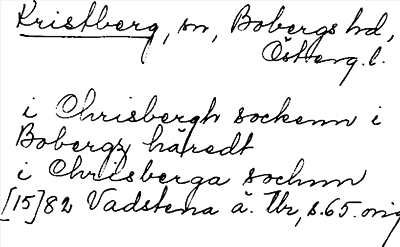 Kristberg, sn, Bobergs hd,
Österg.l.
i Chrisbergh sockenn i
Bobergz häredt
i Chrisberga sochnn
[15]82 Vadstena ä. tbr, s.65. orig